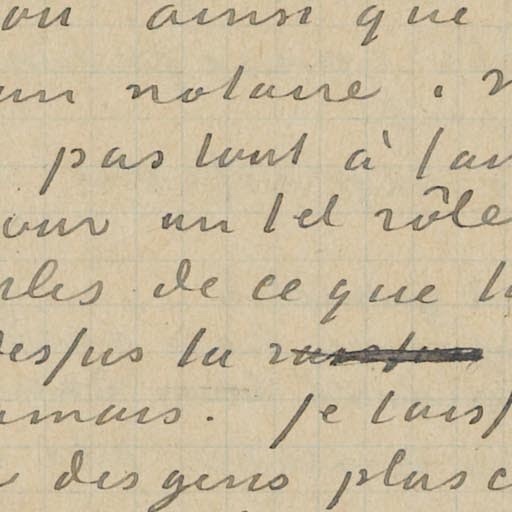 ou ainsi que
un notaire.
pas tout à fai
our un tel rôle
rles de ce que t
dessus tu
amais. Je laiss
des gens plus c